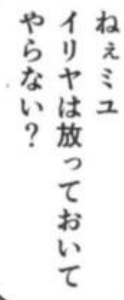 ねぇミユ
イリヤは放っておいて
やらない？